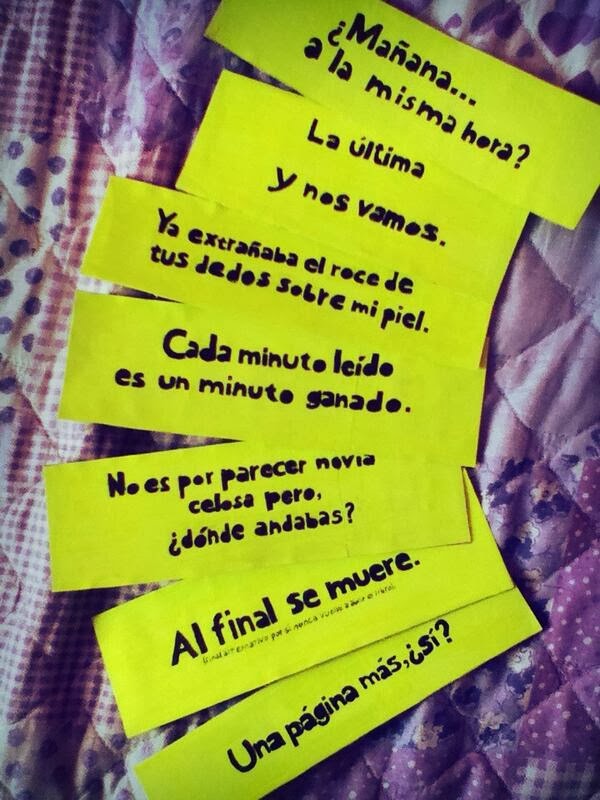 ¿Mañana...
a la misma hora?
La última
y nos vamos.
Ya extrañaba el roce de
tus dedos sobre mi piel.
Cada minuto leído
es un minuto ganado.
No es por parecer novia
celosa pero,
¿dónde andabas?
Al final se muere.
(final alternativo por si nunca vuelve a abrir el
Una página más, ¿sí?